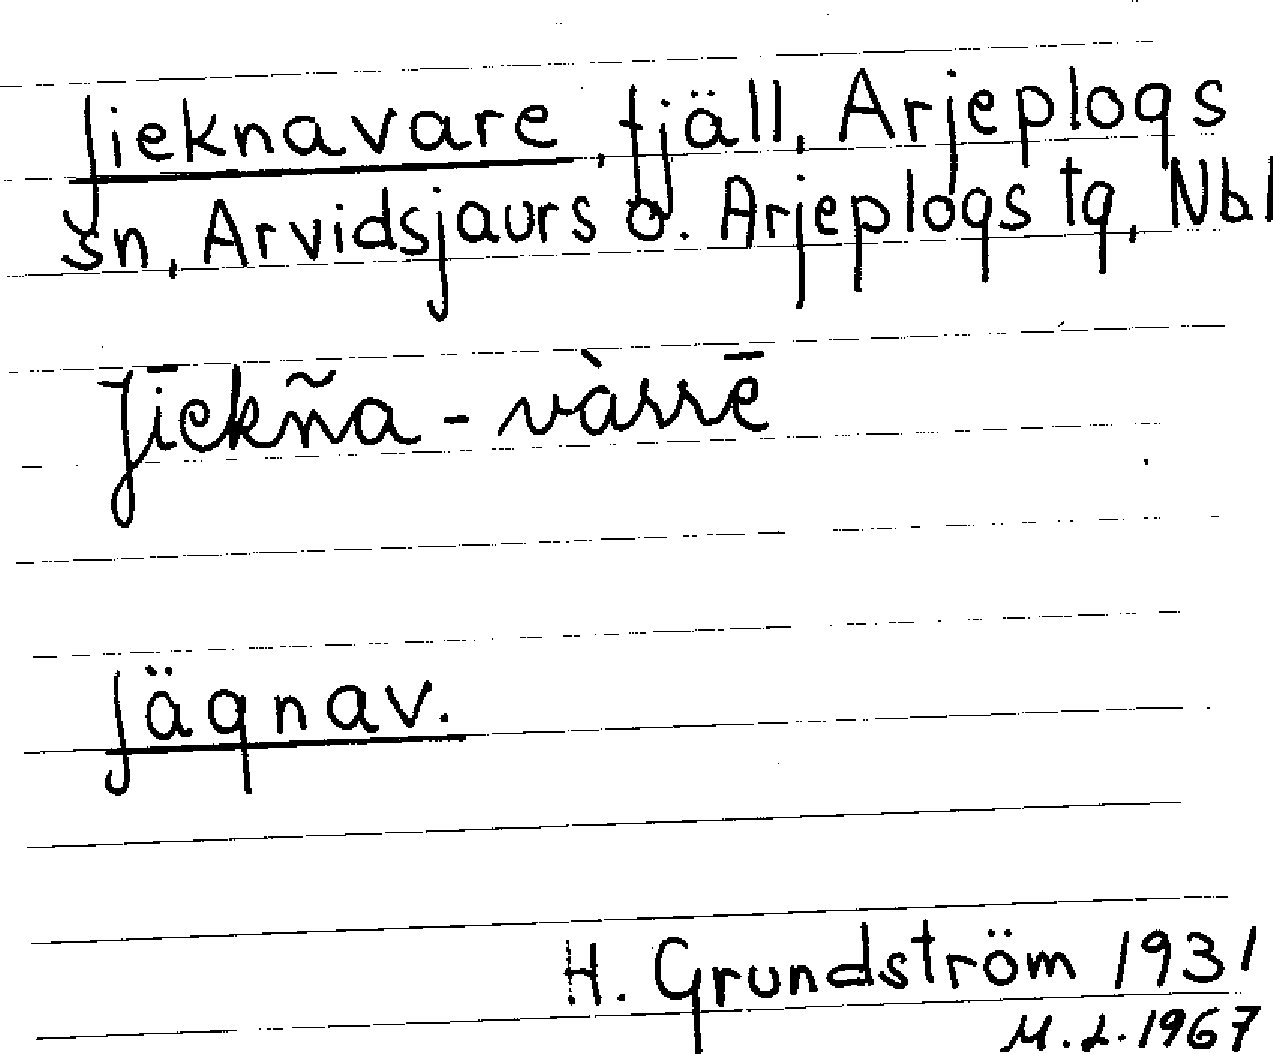 Jieknavare, fjäll, Arjeplogs
sn, Arvidsjaurs o. Arjeplogs tg, Nbl
Jīekña - vàrrē
Jägnav.
H. Grundström 1931
M.L.1967